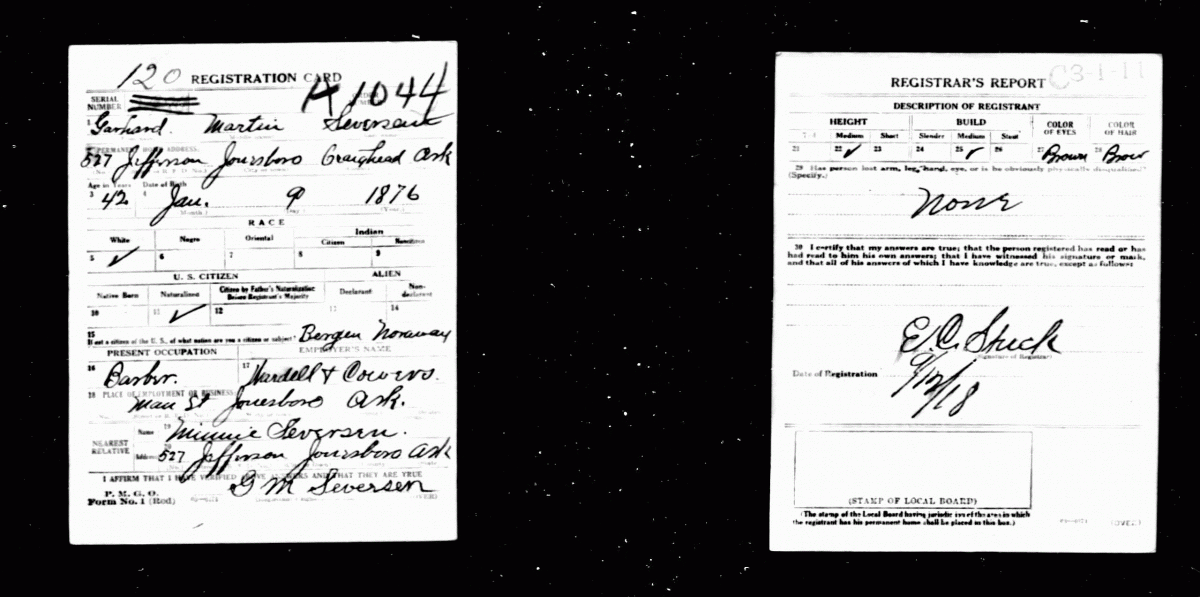 120 REGISTRATION CARD
SERIAL NUMBER A 1044
1 Garhard Martin Seversen
527 Jefferson Jonesboro Craighead Ark
Age in Years Date of Birth
3 42 4 Jan. 9 1876
(Month.) (Day.) (Year.)
RACE
White Negro Oriental Indian
Citizen Noncitizen
5 ✓ 6 7 8 9
U. S. CITIZEN ALIEN
Native Born Naturalized Citizen by Father's Naturalization Before Registrant's Majority Declarant Non-declarant
10 11 ✓ 12 13 14
15 If not a citizen of the U. S., of what nation are you a citizen or subject? Bergen Noraway
PRESENT OCCUPATION EMPLOYER'S NAME
16 Barber. 17 & Cowens.
18 PLACE OF EMPLOYMENT OR BUSINESS:
Main St Jonesboro Ark.
NEAREST RELATIVE Name 19 Minnie Seversen.
Address 527 Jefferson Jonesboro Ark
I AFFIRM THAT I HAVE VERIFIED ABOVE ANSWERS AND THAT THEY ARE TRUE
P. M. G. O.
Form No. 1 (Red) G M Seversen (OVER)
C3-1-11
REGISTRAR'S REPORT
DESCRIPTION OF REGISTRANT
HEIGHT BUILD COLOR OF EYES COLOR OF HAIR
Medium Short Slender Medium Stout
21 22 ✓ 23 24 25 ✓ 26 27 Brown 28 Brow
29 Has person lost arm, leg, hand, eye, or is he obviously physically disqualified?
(Specify.)
None
30 I certify that my answers are true; that the person registered has read or has
had read to him his own answers; that I have witnessed his signature or mark,
and that all of his answers of which I have knowledge are true, except as follows:
E. C. Stuck
(Signature of Registrar)
Date of Registration 9/12/18
(STAMP OF LOCAL BOARD)
(The stamp of the Local Board having jurisdiction of the area in which
the registrant has his permanent home shall be placed in this box.)
(OVER)